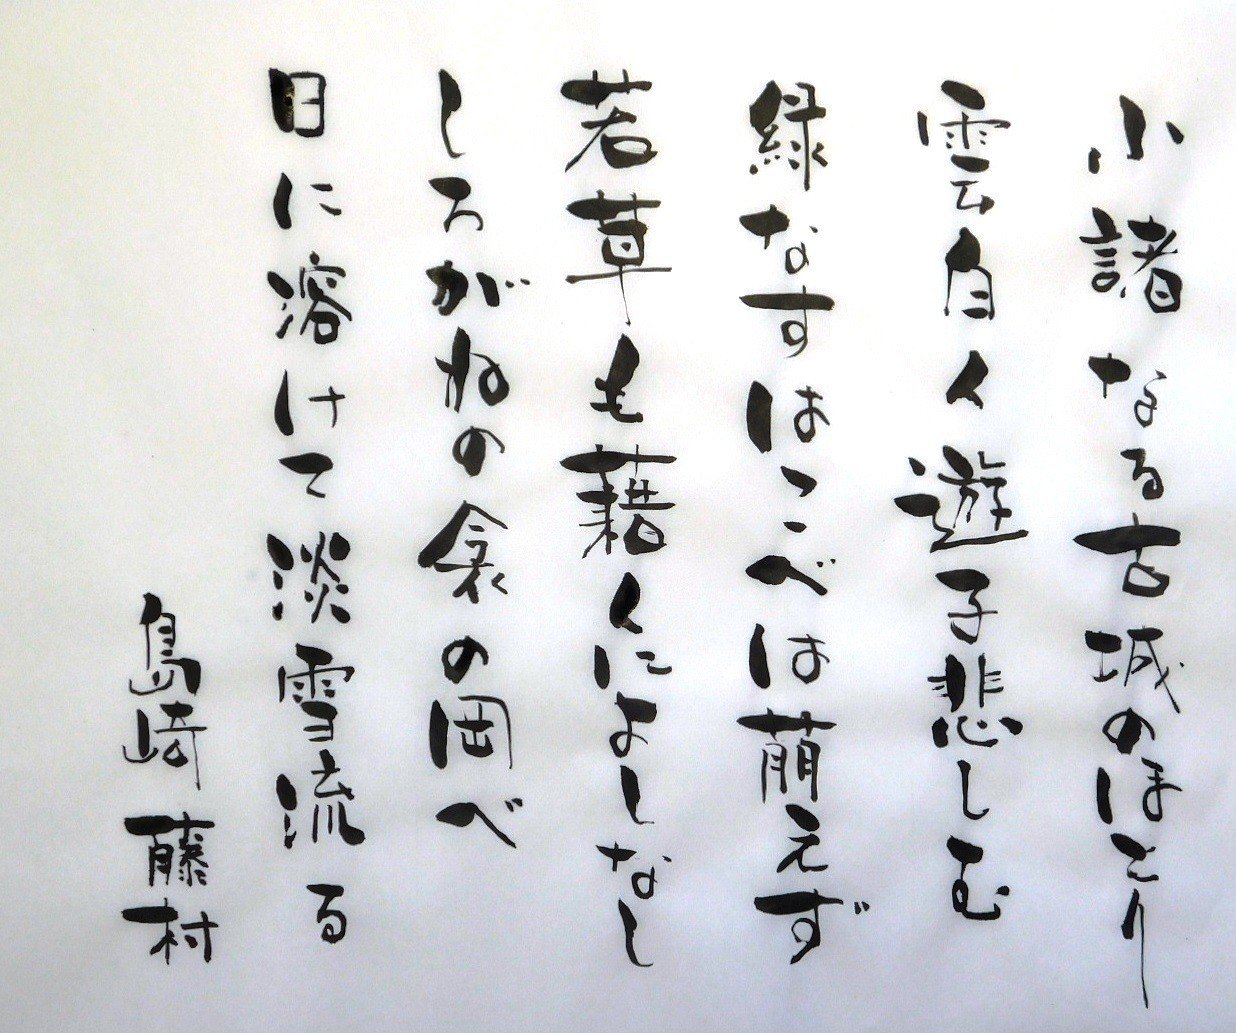 小諸なる古城のほとり
雲白く遊子悲しむ
緑なすはこべは萌えず
若草も藉くによしなし
しろがねの衾の岡べ
日に溶けて淡雪流る
島崎藤村